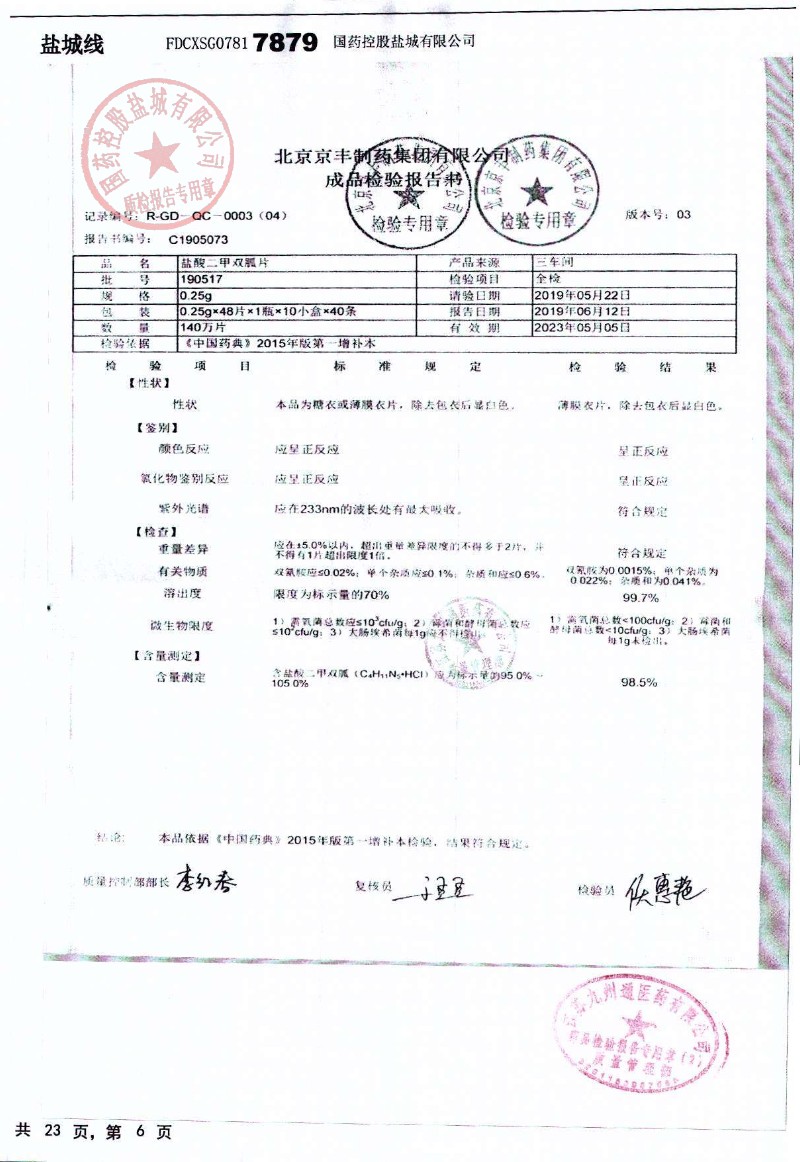 盐城线 FDCXSG0781 7879 国药控股盐城有限公司
国药控股盐城有限公司
质检报告专用章
北京京丰制药集团有限公司
成品检验报告书
检验专用章
北京京丰制药集团有限公司
检验专用章
记录编号: R-GD-QC-0003 (04) 版本号: 03
报告书编号: C1905073
品名 盐酸二甲双胍片 产品来源 三车间
批号 190517 检验项目 全检
规格 0.25g 请验日期 2019年05月22日
包装 0.25g×48片×1瓶×10小盒×40条 报告日期 2019年06月12日
数量 140万片 有效期 2023年05月05日
检验依据 《中国药典》2015年版第一增补本
检验项目 标准规定 检验结果
【性状】
性状 本品为糖衣或薄膜衣片，除去包衣后显白色。 薄膜衣片，除去包衣后显白色。
【鉴别】
颜色反应 应呈正反应 呈正反应
氯化物鉴别反应 应呈正反应 呈正反应
紫外光谱 应在233nm的波长处有最大吸收。 符合规定
【检查】
重量差异 应在±5.0%以内，超出重量差异限度的不得多于2片，并 符合规定
不得有1片超出限度1倍。
有关物质 双氰胺应≤0.02%；单个杂质应≤0.1%；杂质和应≤0.6%。 双氰胺为0.0015%；单个杂质为
0.022%；杂质和为0.041%。
溶出度 限度为标示量的70% 99.7%
微生物限度 1）需氧菌总数应≤10³cfu/g；2）霉菌和酵母菌总数应 1）需氧菌总数<100cfu/g；2）霉菌和
≤10²cfu/g；3）大肠埃希菌每1g应不得检出。 酵母菌总数<10cfu/g；3）大肠埃希菌
每1g未检出。
【含量测定】
含量测定 含盐酸二甲双胍（C₄H₁₁N₅•HCl）应为标示量的95.0%~ 98.5%
105.0%
结论: 本品依据《中国药典》2015年版第一增补本检验，结果符合规定。
质量控制部部长 复核员 检验员
九州通医药有限公司
药品检验报告专用章（2）
质量管理部
共 23 页，第 6 页